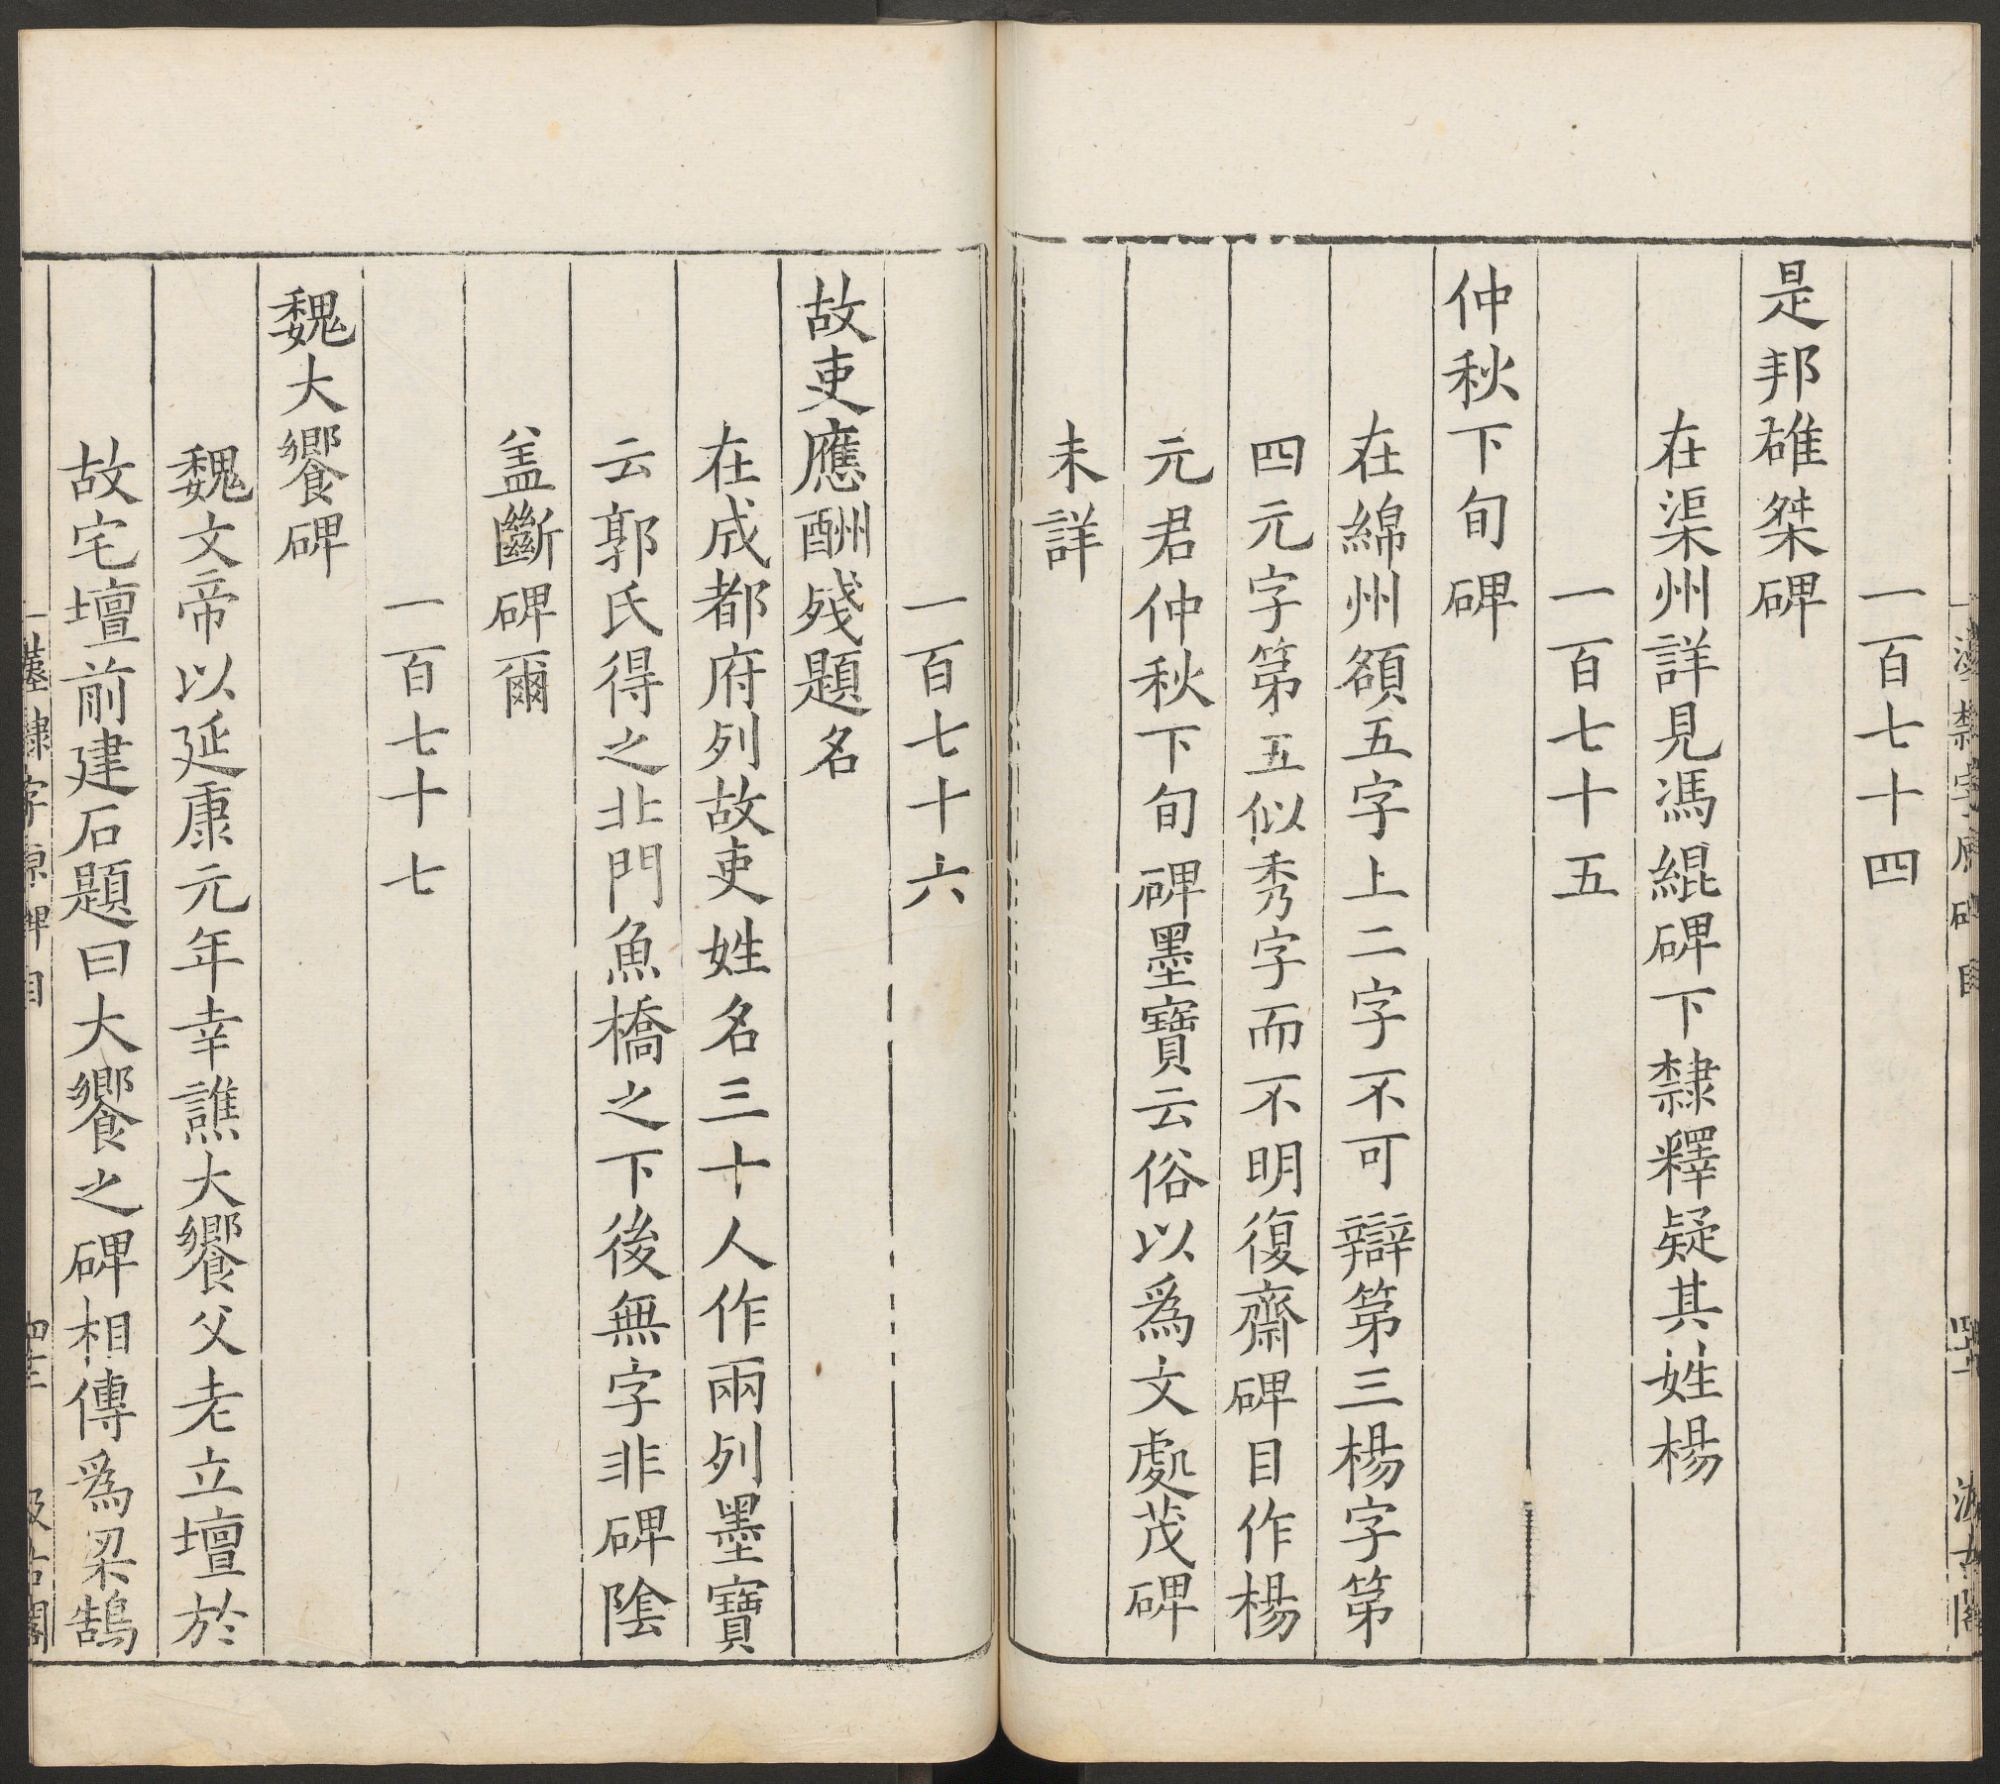 一百七十四
是邦雄桀碑
在渠州詳見馮緄碑下隸釋疑其姓楊
一百七十五
仲秋下旬碑
在綿州額五字上二字不可辯第三楊字第
四元字第五似秀字而不明復齋碑目作楊
元君仲秋下旬碑墨寶云俗以爲文處茂碑
未詳
一百七十六
故吏應酬殘題名
在成都府列故吏姓名三十人作兩列墨寶
云郭氏得之北門魚橋之下後無字非碑陰
盖斷碑爾
一百七十七
魏大饗碑
魏文帝以延康元年幸譙大饗父老立壇於
故宅壇前建石題曰大饗之碑相傳爲梁鵠